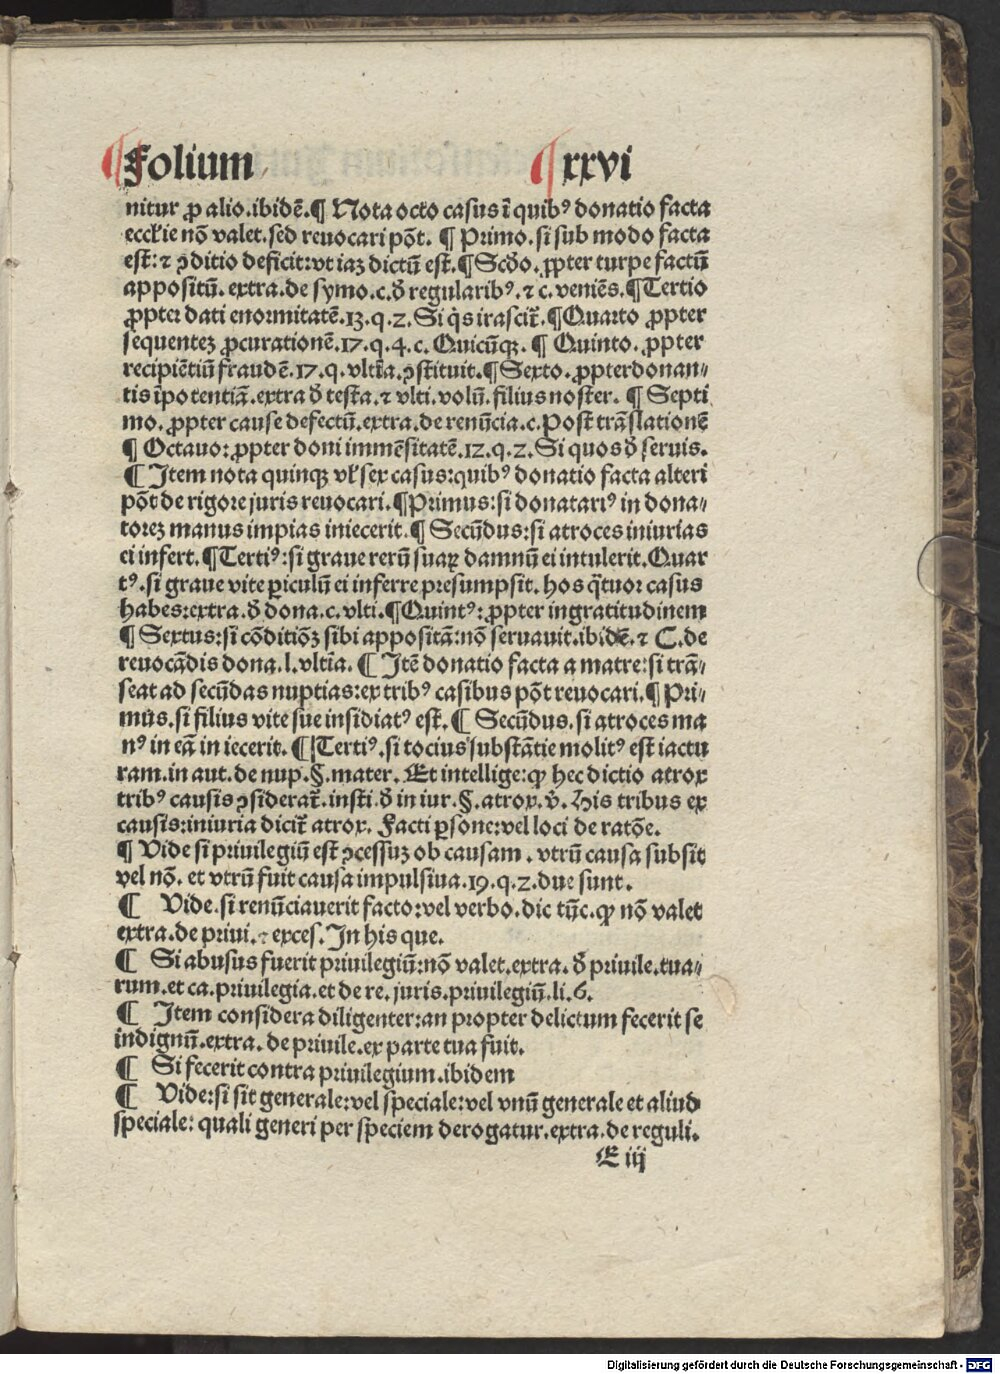 ¶ Folium ¶ xxvi
nitur ꝓ alio.ibidē.¶ Nota octo casus ī quibꝰ donatio facta
eccl'ie nō valet.sed reuocari pōt. ¶ Primo.si sub modo facta
est: ⁊ ꝯditio deficit:vt iaꝫ dictū est.¶Scd̄o.ꝓpter turpe factū
appositū. extra.de symo.c.d̄ regularibꝰ.⁊ c. veniēs.¶Tertio
ꝓpter dati enormitatē.13.q.2. Si q̇s irascit̄.¶Quarto ꝓpter
sequenteꝫ ꝓcurationē.17.q.4.c. Quicūqꝫ. ¶ Quinto. ꝓpter
recipiētiū fraudē.17.q.vltīa.ꝯstituit.¶Sexto.ꝓpterdonan⸗
tis īpotentiā.extra d̄ testa.⁊ vlti.volū.filius noster. ¶ Septi
mo.ꝓpter cause defectū.extra.de renūcia.c.Post trāslationē
¶ Octauo:ꝓpter doni immēsitatē.12.q.2.Si quos d̄ seruis.
¶ Item nota quinqꝫ vl' sex casus:quibꝰ donatio facta alteri
pōt de rigore iuris reuocari.¶Primus:si donatariꝰ in dona⸗
toreꝫ manus impias iniecerit.¶ Secūdus:si atroces iniurias
ei infert.¶Tertiꝰ:si graue rerū suaꝝ damnū ei intulerit.Quar
tꝰ.si graue vite ꝑiculū ei inferre presumpsit.hos q̄tuor casus
habes:extra.d̄ dona.c.vlti.¶Quintꝰ:ꝓpter ingratitudinem
¶ Sextus:si cōditiōꝫ sibi appositā:nō seruauit.ibidē.⁊ C.de
reuocādis dona.l.vltīa. ¶ Itē donatio facta a matre:si trā⸗
seat ad secūdas nuptias:ex tribꝰ casibus pōt reuocari.¶ Pri⸗
mus.si filius vite sue insidiatꝰ est.¶ Secūdus.si atroces ma
nꝰ in eā in iecerit.¶ Tertiꝰ.si tocius substātie molitꝰ est iactu
ram.in aut.de nup.§.mater. Et intellige:ꝙ hec dictio atrox
tribꝰ causis ꝯsiderat̄.insti.d̄ in iur.§.atrox.v̄. His tribus ex
causis:iniuria dicit̄ atrox. Facti ꝑsone:vel loci de ratōe.
¶ Vide si priuilegiū est ꝯcessuꝫ ob causam . vtrū causa subsit
vel nō. et vtrū fuit causa impulsiua.19.q.2.due sunt.
¶ Vide.si renūciauerit facto:vel verbo.dic tūc.ꝙ nō valet
extra.de priui.⁊ exces.In his que.
¶ Si abusus fuerit priuilegiū:nō valet.extra. d̄ priuile.tua⸗
rum.et ca.priuilegia.et de re.iuris.priuilegiū.li.6.
¶ Item considera diligenter:an propter delictum fecerit se
indignū.extra. de priuile.ex parte tua fuit.
¶ Si fecerit contra priuilegium.ibidem
¶ Vide:si sit generale:vel speciale:vel vnū generale et aliud
speciale: quali generi per speciem derogatur.extra.de reguli.
E iij
Digitalisierung gefördert durch die Deutsche Forschungsgemeinschaft - DFG